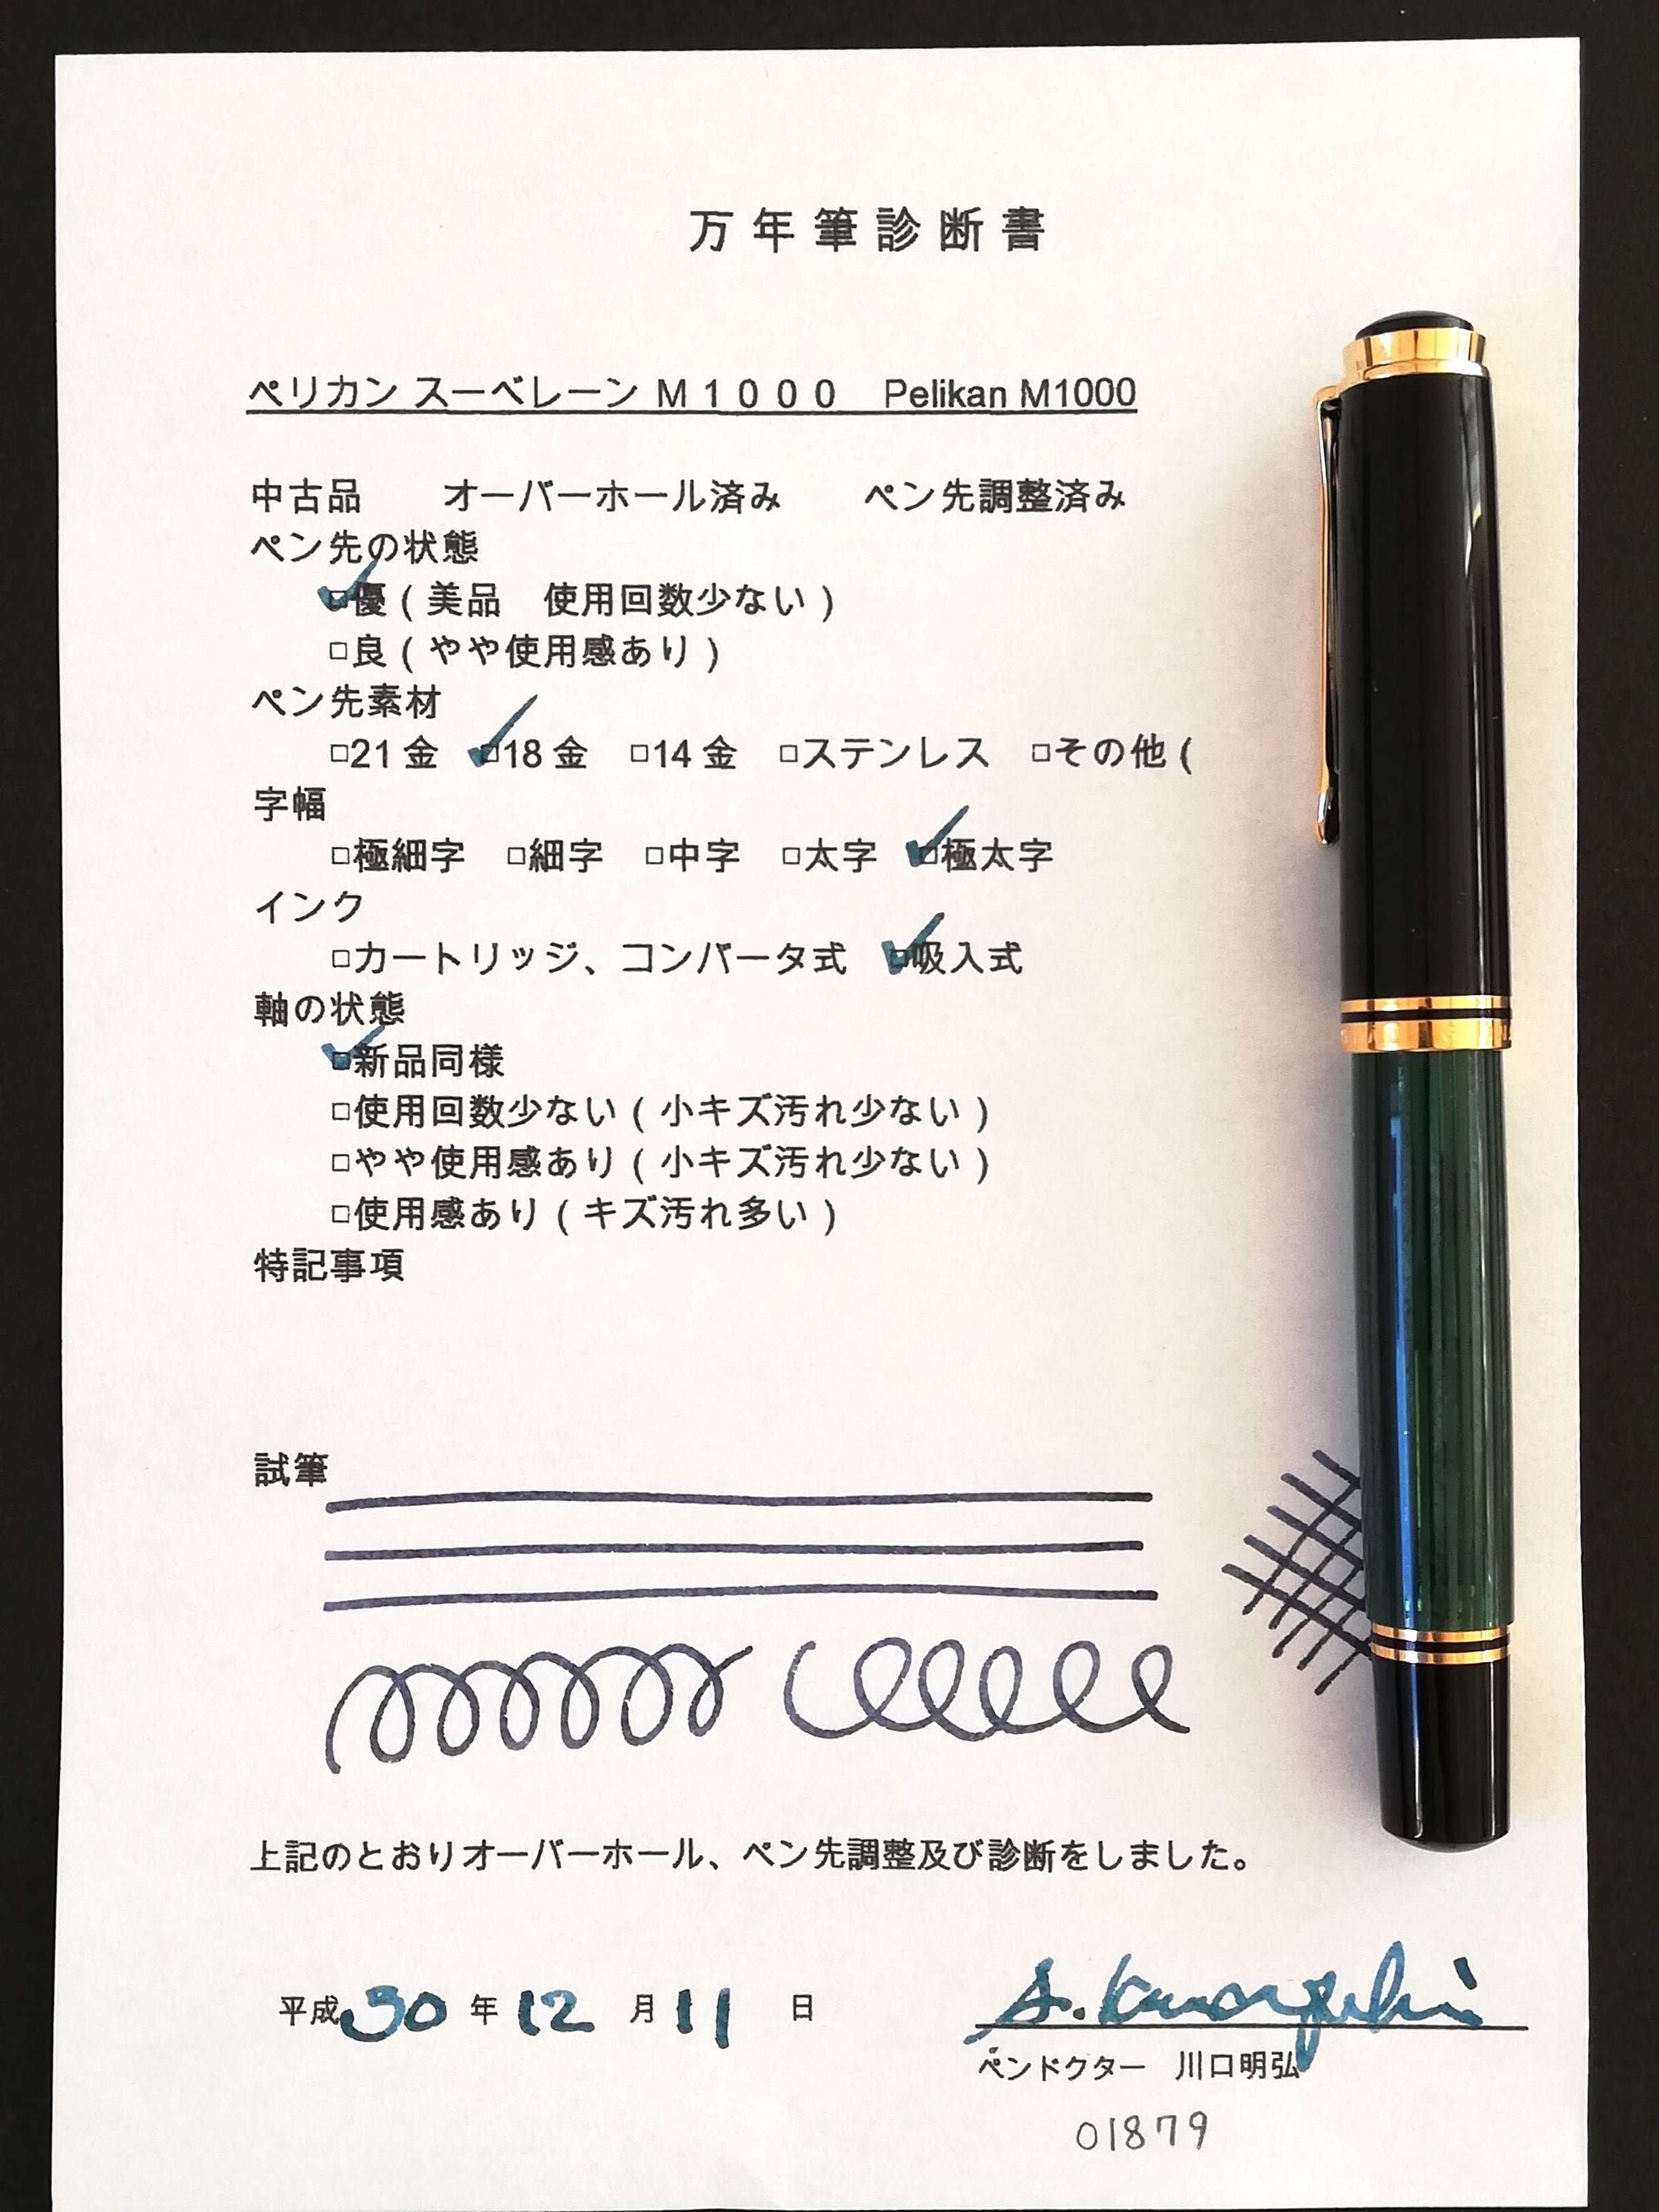 万年筆診断書
ペリカン スーベレーン M1000　Pelikan M1000
中古品　　オーバーホール済み　　ペン先調整済み
ペン先の状態
☑優（美品　使用回数少ない）
□良（やや使用感あり）
ペン先素材
□21金　☑18金　□14金　□ステンレス　□その他（
字幅
□極細字　□細字　□中字　□太字　☑極太字
インク
□カートリッジ、コンバータ式　☑吸入式
軸の状態
☑新品同様
□使用回数少ない（小キズ汚れ少ない）
□やや使用感あり（小キズ汚れ少ない）
□使用感あり（キズ汚れ多い）
特記事項
試筆
上記のとおりオーバーホール、ペン先調整及び診断をしました。
平成30年12月11日
ペンドクター　川口明弘
01879